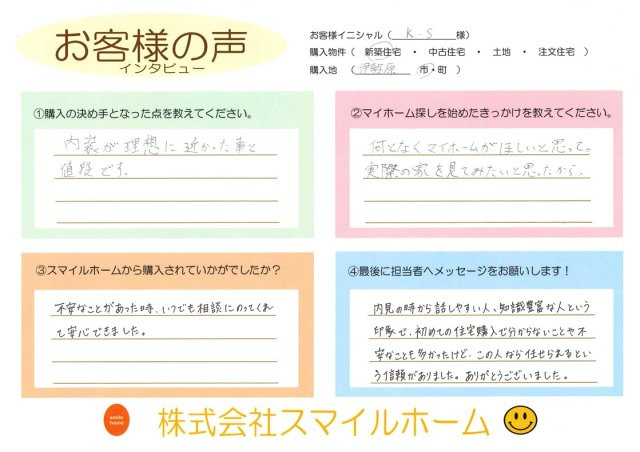 お客様の声
インタビュー
お客様イニシャル（ K・S 様）
購入物件（ 新築住宅 ・ 中古住宅 ・ 土地 ・ 注文住宅 ）
購入地（ 伊勢原 市・町）
①購入の決め手となった点を教えてください。
内装が理想に近かった事と
値段です。
②マイホーム探しを始めたきっかけを教えてください。
何となくマイホームがほしいと思って。
実際の家を見てみたいと思ったから。
③スマイルホームから購入されていかがでしたか？
不安なことがあった時、いつでも相談にのってくれ
て安心できました。
④最後に担当者へメッセージをお願いします！
内見の時から話しやすい人、知識豊富な人という
印象で、初めての住宅購入で分からないことや不
安なことも多かったけど、この人なら任せられるとい
う信頼がありました。ありがとうございました。
smile
home
株式会社スマイルホーム